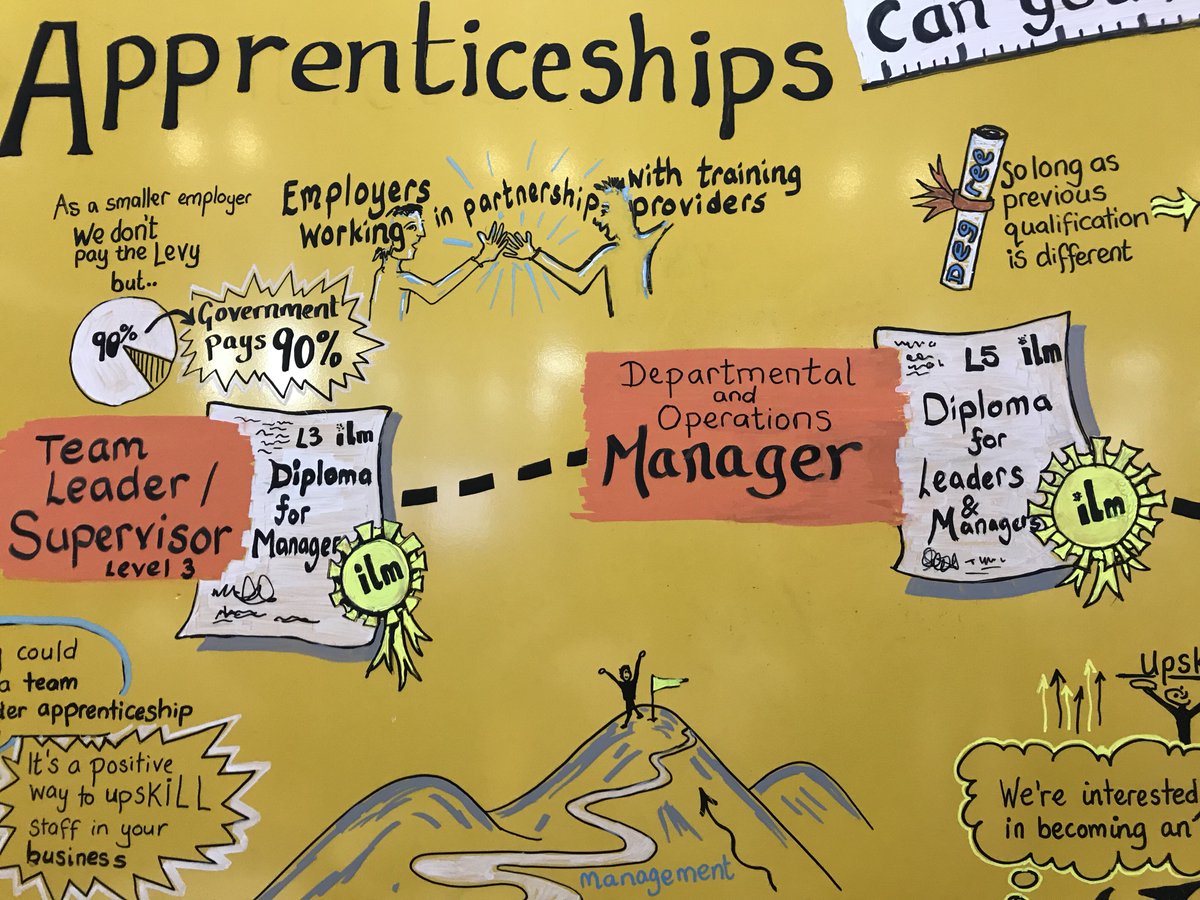 Apprenticeships
Can you
As a smaller employer
We don't
pay the Levy
but..
90%
Government
Pays 90%
Employers
working
in partnership
with training
providers
Degree
So long as
previous
qualification
is different
Team
Leader /
Supervisor
Level 3
L3 ilm
Diploma
for
Manager
ilm
Departmental
and
Operations
Manager
L5 ilm
Diploma
for
Leaders
&
Managers
ilm
could
a team
apprenticeship
It's a positive
way to upskill
staff in your
business
management
We're interested
in becoming an